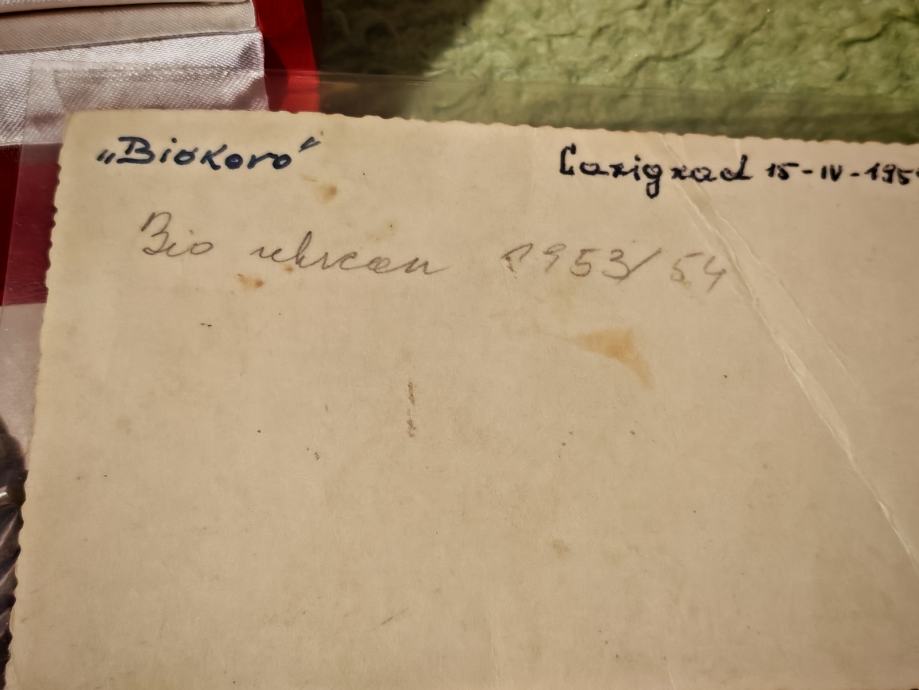 „Biokovo“ Carigrad 15-IV-195
Bio ukrcan 1953/54